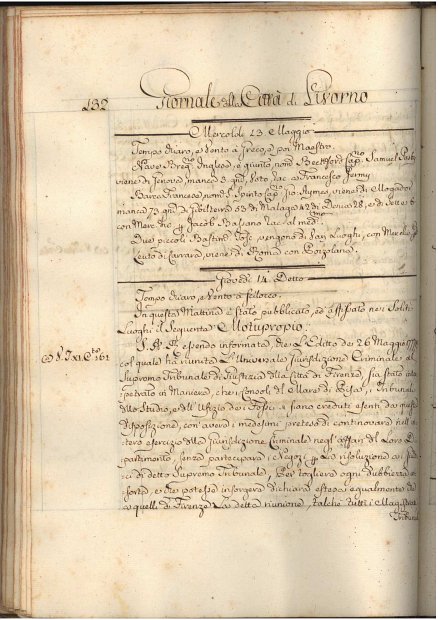 132 Giornale della Città di Livorno
Mercoledì 13 Maggio
Tempo chiaro, e Vento a Greco, e poi Maestro.
Nave Inglese, è giunto, nom.ª Beckford Cap.º Samuel
viene di Genova, manca 3 gni, Rac. a Francesco Jermy
Barca Francese nom.ª S. Spirito Cap.º Aymes viene di Mogador
manca 73 gni, di Gibilterra 53 di Malaga 42 di 28, e di Sette 6
con Merc. Jacob Bassano Rac. al med.mo
Due piccoli Bastim.ti vengono di San Luoghi, con Merc.
Leuto di Carrara, viene di Roma con Pozzolana
Giovedì 14 Detto
Tempo chiaro, e Vento a Scilocco.
In questa Mattina è stato pubblicato, ed affissato nei Soliti
Luoghi il Seguente Motuproprio:
S. A. R. essendo informata, che l'Editto de 26 Maggio
col quale ha riunita l'Universale Jurisdizione Criminale al
Supremo Tribunale di Giustizia della Città di Firenze, sia stato inter
petrato in Maniera, che i Consoli del Mare di Pisa, i Tribunali
dello Studio, e dell'Ufizio dei Fossi si siano creduti esenti da questa
disposizione, con avere i medesimi preteso di continovare nell'in
tero esercizio della Jurisdizione Criminale negl'affari del Loro Di
partimento, senza partecipare i Negozi per la risoluzione ai Giudi
ci di detto Supremo Tribunale, Per togliere ogni dubbiezza in
sorta, e che potesse insorgere dichiara estesa egualmente che
a quelli di Firenze la detta riunione, talchè tutti i Magistrati
Tribunal